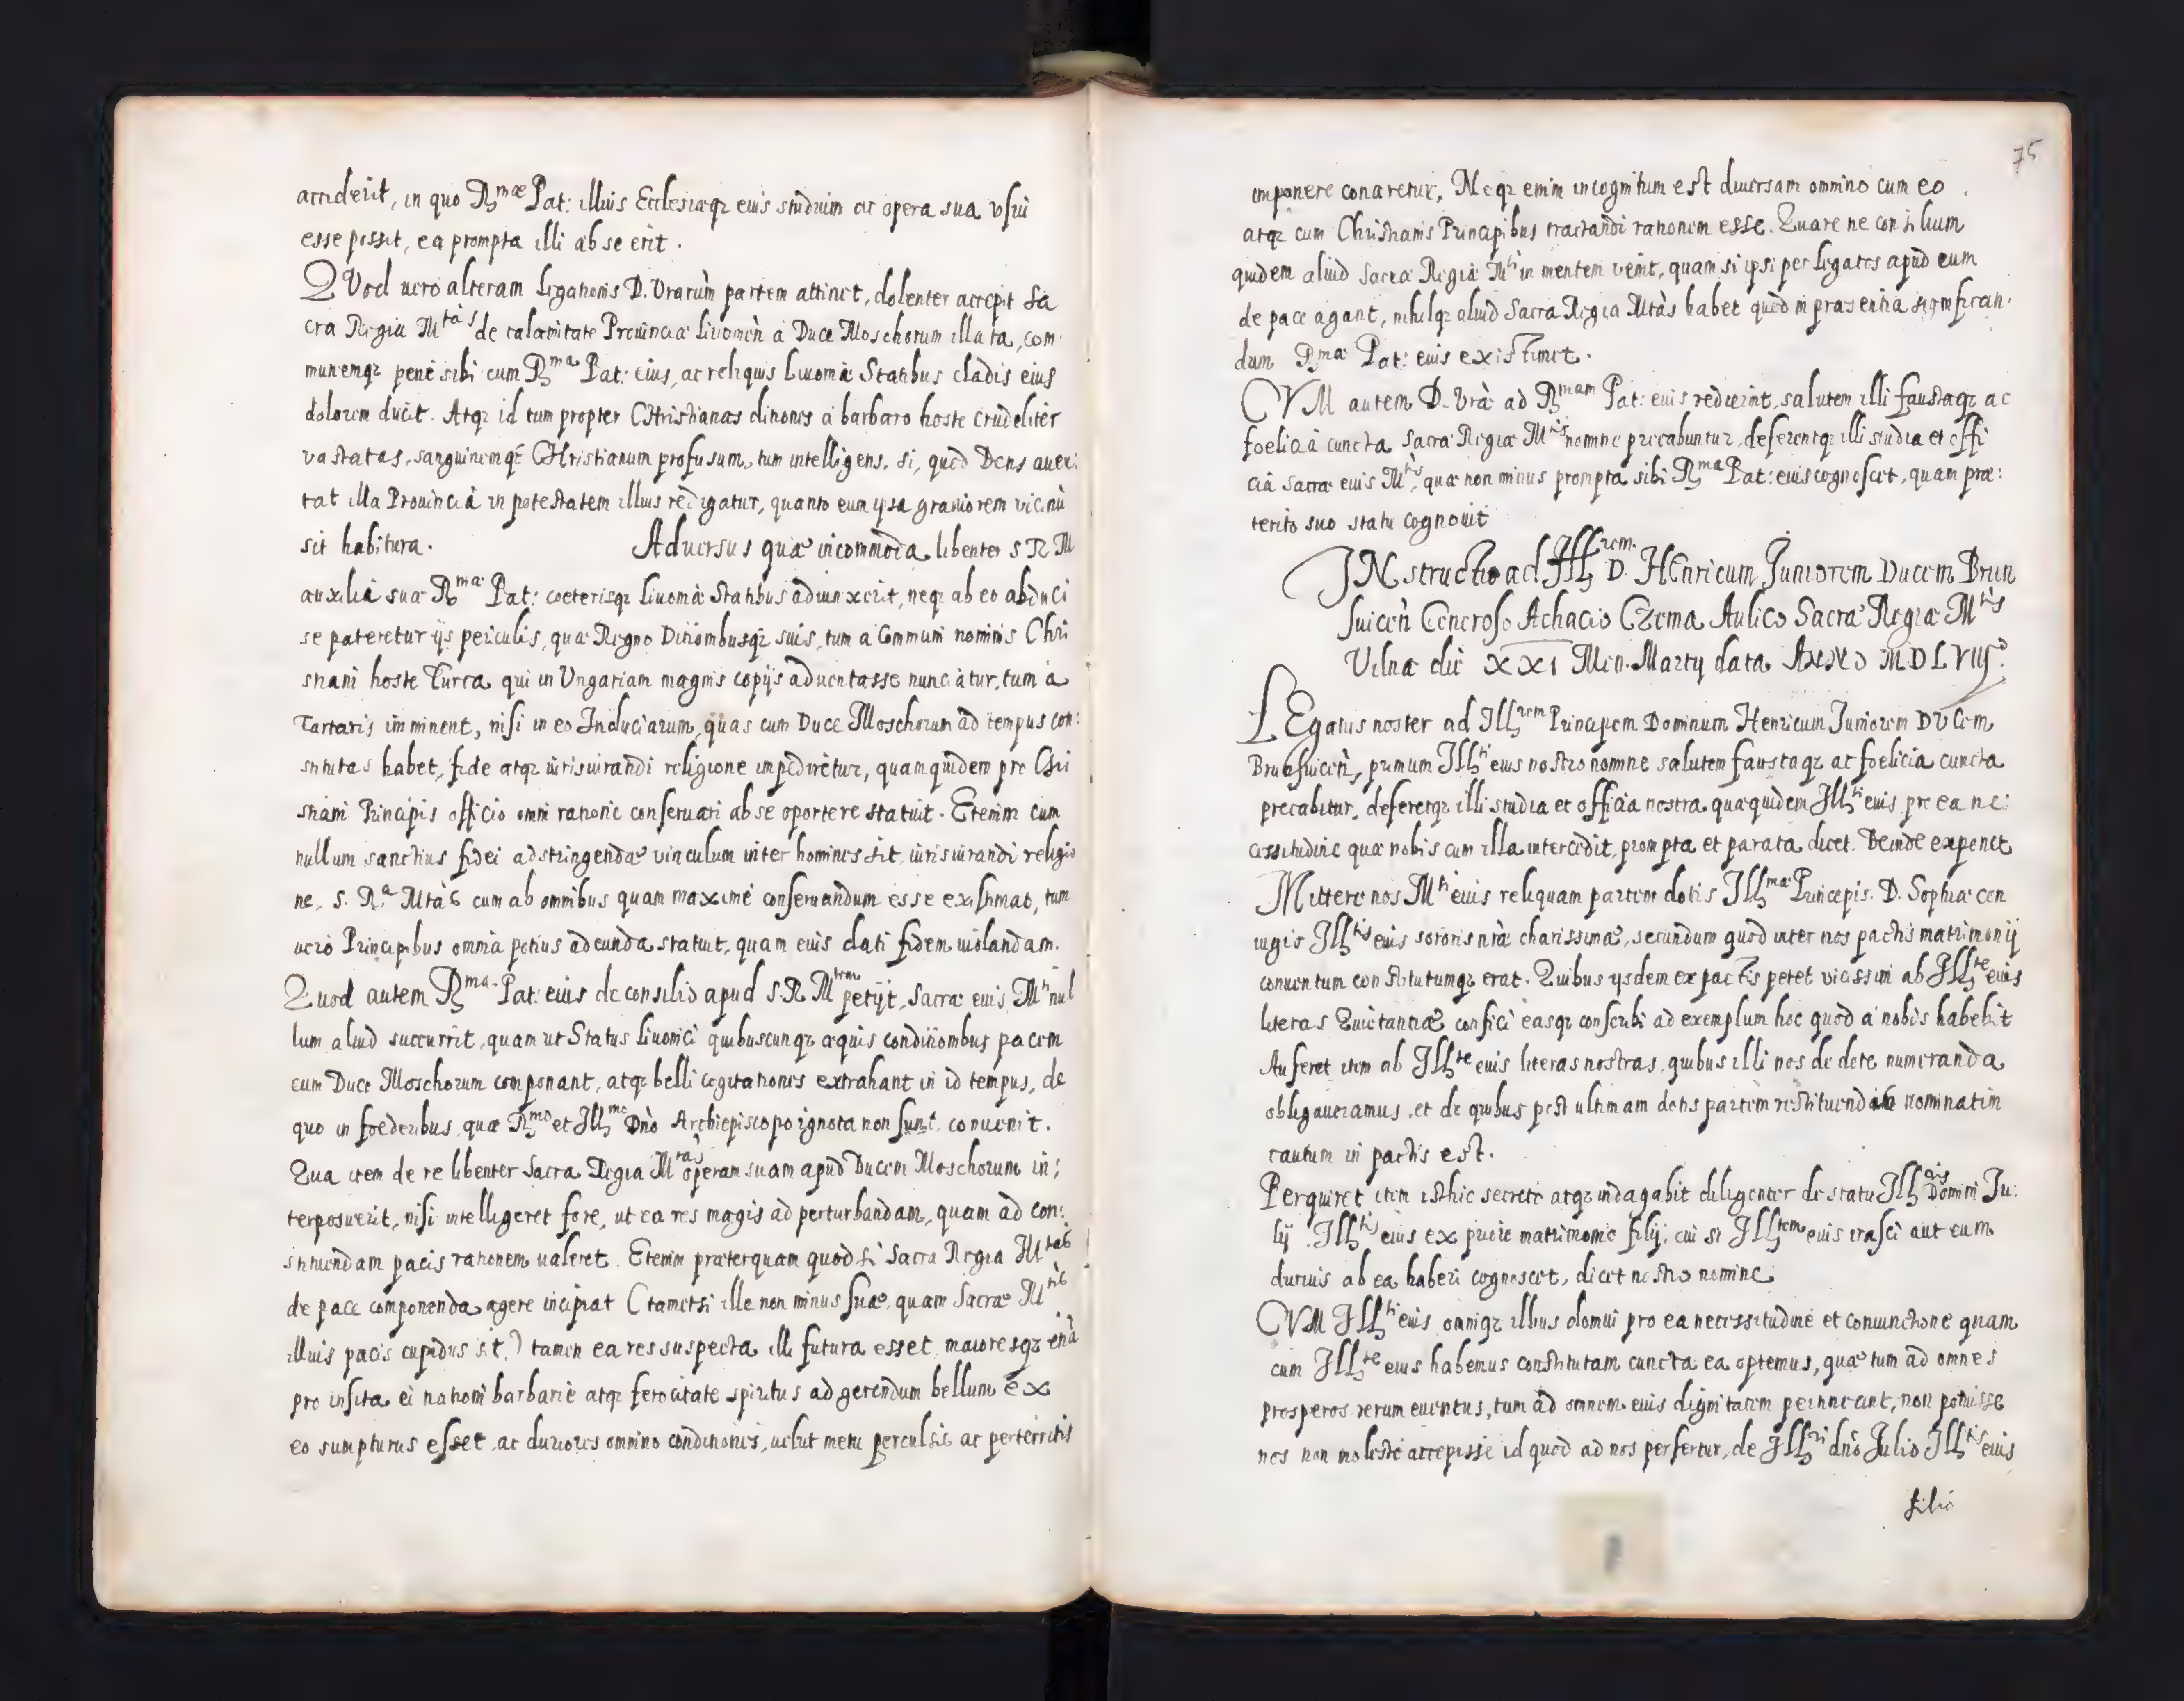 acciderit, in quo R^mae Pat: illius Ecclesiaeq; eius studium ac opera sua vsui
esse possit, ea prompta illi ab se erit.
QVod uero alteram legationis D. Vrarùm partem attinet, dolenter accepit Sa
cra Regia M^tàs de calamitate Prouinciae Liuonicń a Duce Moschorum illata, com
munemq; penè sibi cum R^ma Pat: eius, ac reliquis Liuoniae Statibus cladis eius
dolorem ducit. Atq; id tum propter CHristianas ditiones a barbaro hoste crudeliter
vastatas, sanguinemq; CHristianum profusum, tum intelligens, si, quod Deus auer:
tat illa Prouincia in potestatem illius redigatur, quanto eum ipsa grauiorem vicinù
sit habitura. Aduersus quae incommoda libenter S R M
auxilia sua R^mae Pat: coeterisq; Liuoniae Statibus adiunxerit, neq; ab eo abduci
se pateretur ijs periculis, quae Regno Ditionibusq; suis, tum a Communi nominis Chri
stiani hoste Turca, qui in Vngariam magnis copijs aduentasse nunciatur, tum à
Tartaris imminent, nisi in eo Induciarum, quas cum Duce Moschorum ad tempus con:
stitutas habet, fide atq; iurisiurandi religione impediretur, quam quidem pro Chri
stiani Principis officio omni ratione conseruari ab se oportere statuit. Etenim cum
nullum sanctius fidei adstringendae vinculum inter homines sit, iurisiurandi religio
ne, S. R^a Mtàs cum ab omnibus quam maximè conseruandum esse existimat, tum
uero Principibus omnia potius adeunda statuit, quam eius dati fidem uiolandam.
Quod autem R^ma Pat: eius de consilio apud S. R. M^tem petijt, Sacrae eius M^ti nul
lum aliud succurrit, quam ut Status Liuonici quibuscunq; aequis conditionibus pacem
cum Duce Moschorum componant, atq; belli cogitationes extrahant in id tempus, de
quo in foederibus, quae R^mo et Ill^mo Dnò Archiepiscopo ignota non sunt, conuenit.
Qua item de re libenter Sacra Regia M^tàs operam suam apud Ducem Moschorum in:
terposuerit, nisi intelligeret fore, ut ea res magis ad perturbandam, quam ad con:
stituendam pacis rationem ualeret. Etenim praeterquam quod si Sacra Regia M^tas
de pace componenda agere incipiat (tametsi ille non minus suae, quam Sacrae M^tis
illius pacis cupidus sit,) tamen ea res suspecta illi futura esset, maioresq; etià
pro insita ei nationi barbarie atq; ferocitate spiritus ad gerendum bellum ex
eo sumpturus esset, ac duriores omnino conditiones, uelut metu perculsis ac perterritis
75
imponere conaretur, Neq; enim incognitum est diuersam omnino cum eo
atq; cum Christianis Principibus tractandi rationem esse. Quare ne consilium
quidem aliud Sacrae Regiae M^ti in mentem venit, quam si ipsi per legatos apud eum
de pace agant, nihilq; aliud Sacra Regia Mtàs habet quod in praesentia significan:
dum R^mae Pat: eius existimet.
CVM autem D. Vrà ad R^mam Pat: eius redierint, salutem illi faustaq; ac
foelicia cuncta Sacrae Regiae M^tis nomine precabuntur, deferentq; illi studia et offi
cia Sacrae eius M^tis, quae non minus prompta sibi R^ma Pat: eius cognoscet, quam prae:
terito suo statu cognouit
INstructio ad Ill^rem D. HEnricum Juniorem Ducem Brun
suiceń Generoso Achacio Czema Aulico Sacrae Regiae M^tis
Vilnae die XXI Men. Martij data ANNO MDLVIIJ°.
LEgatus noster ad Ill^rem Principem Dominum Henricum Juniorem DVCem
Brunsuiceń, primum Ill^ti eius nostro nomine salutem faustaq; ac foelicia cuncta
precabitur, deferetq; illi studia et officia nostra, quae quidem Ill^ti eius pro ea ne:
cessitudine quae nobis cum illa intercedit, prompta et parata dicet. Deinde exponet
Mittere nos M^ti eius reliquam partem dotis Ill^mae Principis. D. Sophiae con
iugis Ill^tis eius sororis nràe charissimae, secundum quod inter nos pactis matrimonij
conuentum constitutumq; erat. Quibus ijsdem ex pactis petet vicissim ab Ill^te eius
literas Quietantiae confici easq; conscribi ad exemplum hoc quod à nobis habebit
Auferet item ab Ill^te eius literas nostras, quibus illi nos de dote numeranda
obligaueramus, et de quibus post ultimam dotis partem restituendis nominatim
cautum in pactis est.
Perquiret item isthic secretò atq; indagabit diligenter de statu Ill^ris Domini Ju:
lij Ill^tis eius ex priore matrimonio filij, cui si Ill^tem eius irasci aut eum
durius ab ea haberi cognoscet, dicet nostro nomine
CVM Ill^ti eius omniq; illius domui pro ea necessitudine et coniunctione quam
cum Ill^te eius habemus constitutam cuncta ea optemus, quae tum ad omnes
prosperos rerum euentus, tum ad omnem eius dignitatem pertineant, non potuisse
nos non molestè accepisse id quod ad nos perfertur, de Ill^ri dnò Julio Ill^tis eius
filio